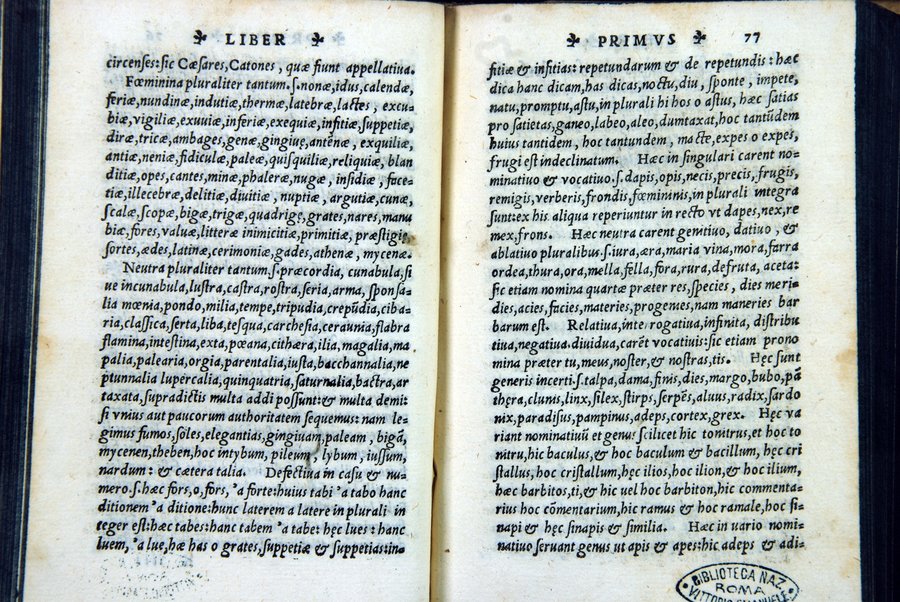 LIBER
circenses: sic Cæsares, Catones, quæ fiunt appellatiua.
Fœminina pluraliter tantum .s. nonæ, idus, calendæ,
feriæ, nundinæ, indutiæ, thermæ, latebræ, lactes, excu-
biæ, vigiliæ, exuuiæ, inferiæ, exequiæ, infitiæ, suppetiæ,
diræ, tricæ, ambages, genæ, gingiuę, antēnæ, exquiliæ,
antiæ, neniæ, fidiculæ, paleæ, quisquiliæ, reliquiæ, blan
ditiæ, opes, cantes, minæ, phaleræ, nugæ, insidiæ, face-
tiæ, illecebræ, delitiæ, diuitiæ, nuptiæ, argutiæ, cunæ,
scalæ, scopæ, bigæ, trigæ, quadrigę, grates, nares, manu
biæ, fores, valuæ, litteræ inimicitiæ, primitiæ, præstigię
sortes, ædes, latinæ, cerimoniæ, gades, athenæ, mycenæ.
Neutra pluraliter tantum .s. præcordia, cunabula, si
ue incunabula, lustra, castra, rostra, seria, arma, sponsa-
lia mœnia, pondo, milia, tempe, tripudia, crepūdia, ciba-
ria, classica, serta, liba, tesqua, carchesia, ceraunia, flabra
flamina, intestina, exta, pœana, cithæra, ilia, magalia, ma
palia, palearia, orgia, parentalia, iusta, bacchannalia, ne
ptunnalia lupercalia, quinquatria, saturnalia, bactra, ar
taxata, supradictis multa addi possunt: & multa demi:
si vnius aut paucorum authoritatem sequemur: nam le-
gimus fumos, soles, elegantias, gingiuam, paleam, bigā,
mycenen, theben, hoc intybum, pileum, lybum, iussum,
nardum: & cætera talia. Defectiua in casu & nu-
mero .s. hæc fors, o, fors, 'a forte: huius tabi 'a tabo hanc
ditionem 'a ditione: hunc laterem a latere in plurali in
teger est: hæc tabes: hanc tabem 'a tabe: hęc lues: hanc
luem, 'a lue, hæ has o grates, suppetiæ & suppetias: in-
PRIMVS 77
fitiæ & infitias: repetundarum & de repetundis: hæc
dica hanc dicam, has dicas, noctu, diu, sponte, impete,
natu, promptu, astu, in plurali hi hos o astus, hæc satias
pro satietas, ganeo, labeo, aleo, dumtaxat, hoc tantūdem
huius tantidem, hoc tantundem, macte, expes o expes,
frugi est indeclinatum. Hæc in singulari carent no-
minatiuo & vocatiuo .s. dapis, opis, necis, precis, frugis,
remigis, verberis, frondis, fœmininis, in plurali integra
sunt: ex his aliqua reperiuntur in recto vt dapes, nex, re
mex, frons. Hæc neutra carent genitiuo, datiuo, &
ablatiuo pluralibus .s. iura, æra, maria vina, mora, farra
ordea, thura, ora, mella, fella, fora, rura, defruta, aceta:
sic etiam nomina quartæ præter res, species, dies meri-
dies, acies, facies, materies, progenies, nam maneries bar
barum est. Relatiua, interrogatiua, infinita, distribu
tiua, negatiua, diuidua, carēt vocatiuis: sic etiam prono
mina præter tu, meus, noster, & nostras, tis. Hęc sunt
generis incerti .s. talpa, dama, finis, dies, margo, bubo, pā
thęra, clunis, linx, silex, stirps, serpēs, aluus, radix, sardo
nix, paradisus, pampinus, adeps, cortex, grex. Hęc va
riant nominatiuū et genus scilicet hic tonitrus, et hoc to
nitru, hic baculus, & hoc baculum & bacillum, hęc cri
stallus, hoc cristallum, hęc ilios, hoc ilion, & hoc ilium,
hæc barbitos, ti, & hic uel hoc barbiton, hic commenta-
rius hoc cōmentarium, hic ramus & hoc ramale, hoc si-
napi & hęc sinapis & similia. Hæc in uario nomi-
natiuo seruant genus ut apis & apes: hic adeps & adi-
BIBLIOTECA NAZ
ROMA
VITTORIO EMANUELE